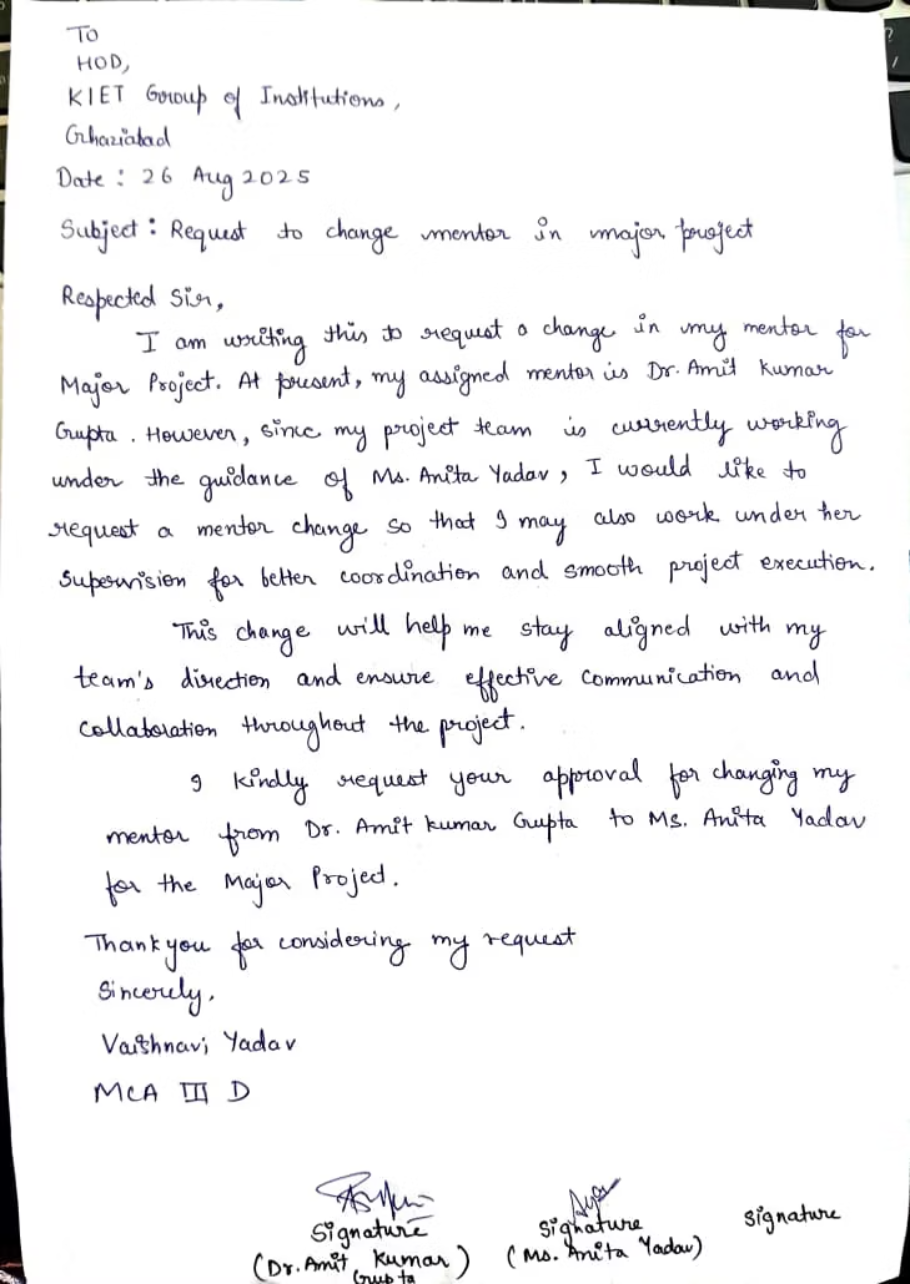 To
HOD,
KIET Group of Institutions,
Ghaziabad
Date : 26 Aug 2025
Subject : Request to change mentor in major project
Respected Sir,
I am writing this to request a change in my mentor for
Major Project. At present, my assigned mentor is Dr. Amit Kumar
Gupta. However, since my project team is currently working
under the guidance of Ms. Anita Yadav, I would like to
request a mentor change so that I may also work under her
supervision for better coordination and smooth project execution.
This change will help me stay aligned with my
team's direction and ensure effective communication and
collaboration throughout the project.
I kindly request your approval for changing my
mentor from Dr. Amit Kumar Gupta to Ms. Anita Yadav
for the Major Project.
Thank you for considering my request
Sincerely,
Vaishnavi Yadav
MCA III D
Signature Signature Signature
(Dr. Amit Kumar Gupta) (Ms. Anita Yadav)